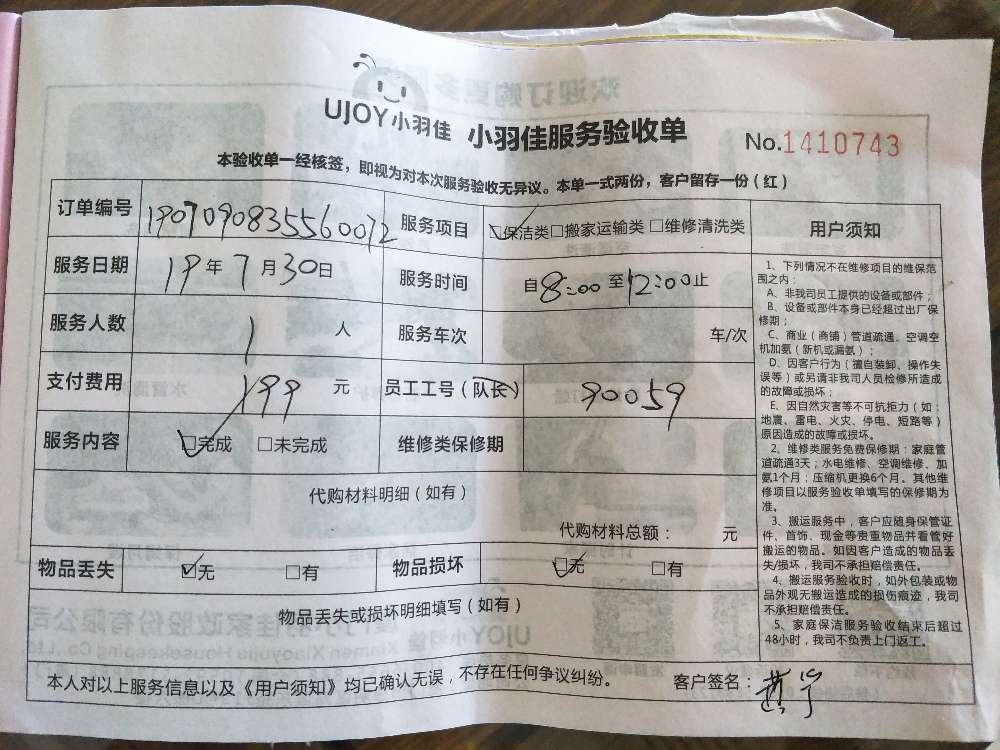 UJOY小羽佳 小羽佳服务验收单 No.1410743
本验收单一经核签，即视为对本次服务验收无异议。本单一式两份，客户留存一份（红）
订单编号 1907090835560072 服务项目 ☑保洁类□搬家运输类□维修清洗类
服务日期 19年7月30日 服务时间 自8:00至12:00止
服务人数 1人 服务车次 车/次
支付费用 199元 员工工号（队长） 90059
服务内容 ☑完成 □未完成 维修类保修期
代购材料明细（如有）
代购材料总额： 元
物品丢失 ☑无 □有 物品损坏 ☑无 □有
物品丢失或损坏明细填写（如有）
本人对以上服务信息以及《用户须知》均已确认无误，不存在任何争议纠纷。 客户签名：
用户须知
1、下列情况不在维修项目的维保范
围之内：
A、非我司员工提供的设备或部件；
B、设备或部件本身已经超过出厂保
修期；
C、商业（商铺）管道疏通、空调空
机加氨（新机或漏氨）；
D、因客户行为（擅自装卸、操作失
误等）或另请非我司人员检修所造成
的故障或损坏；
E、因自然灾害等不可抗拒力（如：
地震、雷电、火灾、停电、短路等）
原因造成的故障或损坏。
2、维修类服务免费保修期：家庭管
道疏通3天；水电维修、空调维修、加
氨1个月；压缩机更换6个月。其他维
修项目以服务验收单填写的保修期为
准。
3、搬运服务中，客户应随身保管证
件、首饰、现金等贵重物品并看管好
搬运的物品。如因客户造成的物品丢
失/损坏，我司不承担赔偿责任。
4、搬运服务验收时，如外包装或物
品外观无搬运造成的损伤痕迹，我司
不承担赔偿责任。
5、家庭保洁服务验收结束后超过
48小时，我司不负责上门返工。